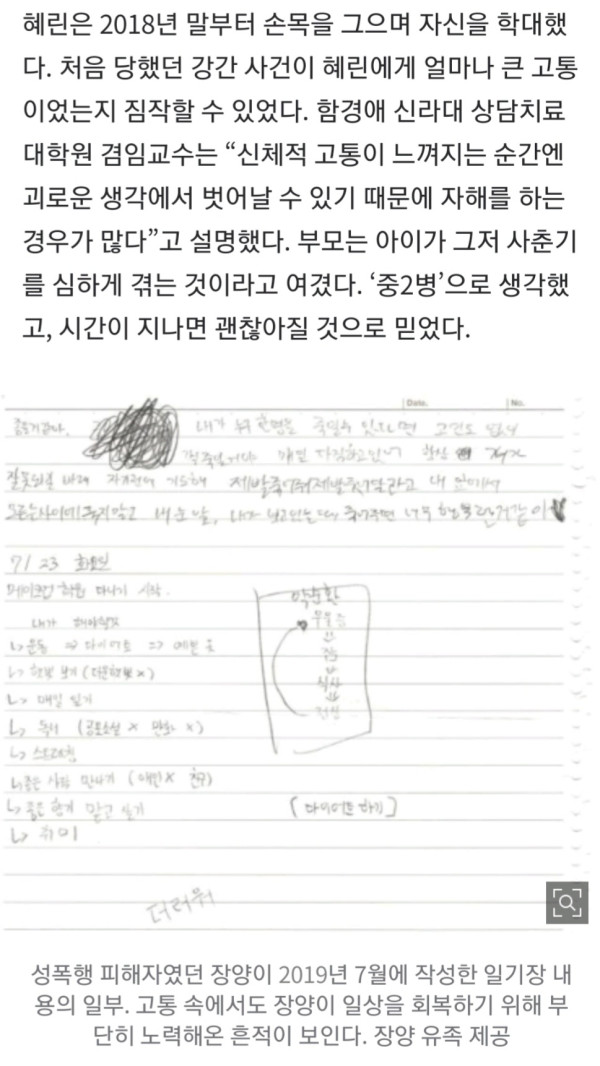 혜린은 2018년 말부터 손목을 그으며 자신을 학대했
다. 처음 당했던 강간 사건이 혜린에게 얼마나 큰 고통
이었는지 짐작할 수 있었다. 함경애 신라대 상담치료
대학원 겸임교수는 “신체적 고통이 느껴지는 순간엔
괴로운 생각에서 벗어날 수 있기 때문에 자해를 하는
경우가 많다”고 설명했다. 부모는 아이가 그저 사춘기
를 심하게 겪는 것이라고 여겼다. ‘중2병’으로 생각했
고, 시간이 지나면 괜찮아질 것으로 믿었다.
Date. No.
내가 한명을 죽일수 있으면
매일 다짐하고 항상
내 앞에서
7/23 화요일
메이크업 학원 다니기 시작.
내가 해야할것
↳운동 ⇒ 다이어트 ⇒ 예쁜 옷
↳ 보기 ( x)
↳ 매일 일기
↳ 독서 (공포소설 x 만화 x)
↳ 스트레칭
↳좋은 사람 만나기 (애인x 친구)
↳좋은 향기 맡고
↳ 취미
악순환
우울증
⇓
잠
⇓
식사
⇓
[다이어트 하기]
더러워
성폭행 피해자였던 장양이 2019년 7월에 작성한 일기장 내
용의 일부. 고통 속에서도 장양이 일상을 회복하기 위해 부
단히 노력해온 흔적이 보인다. 장양 유족 제공